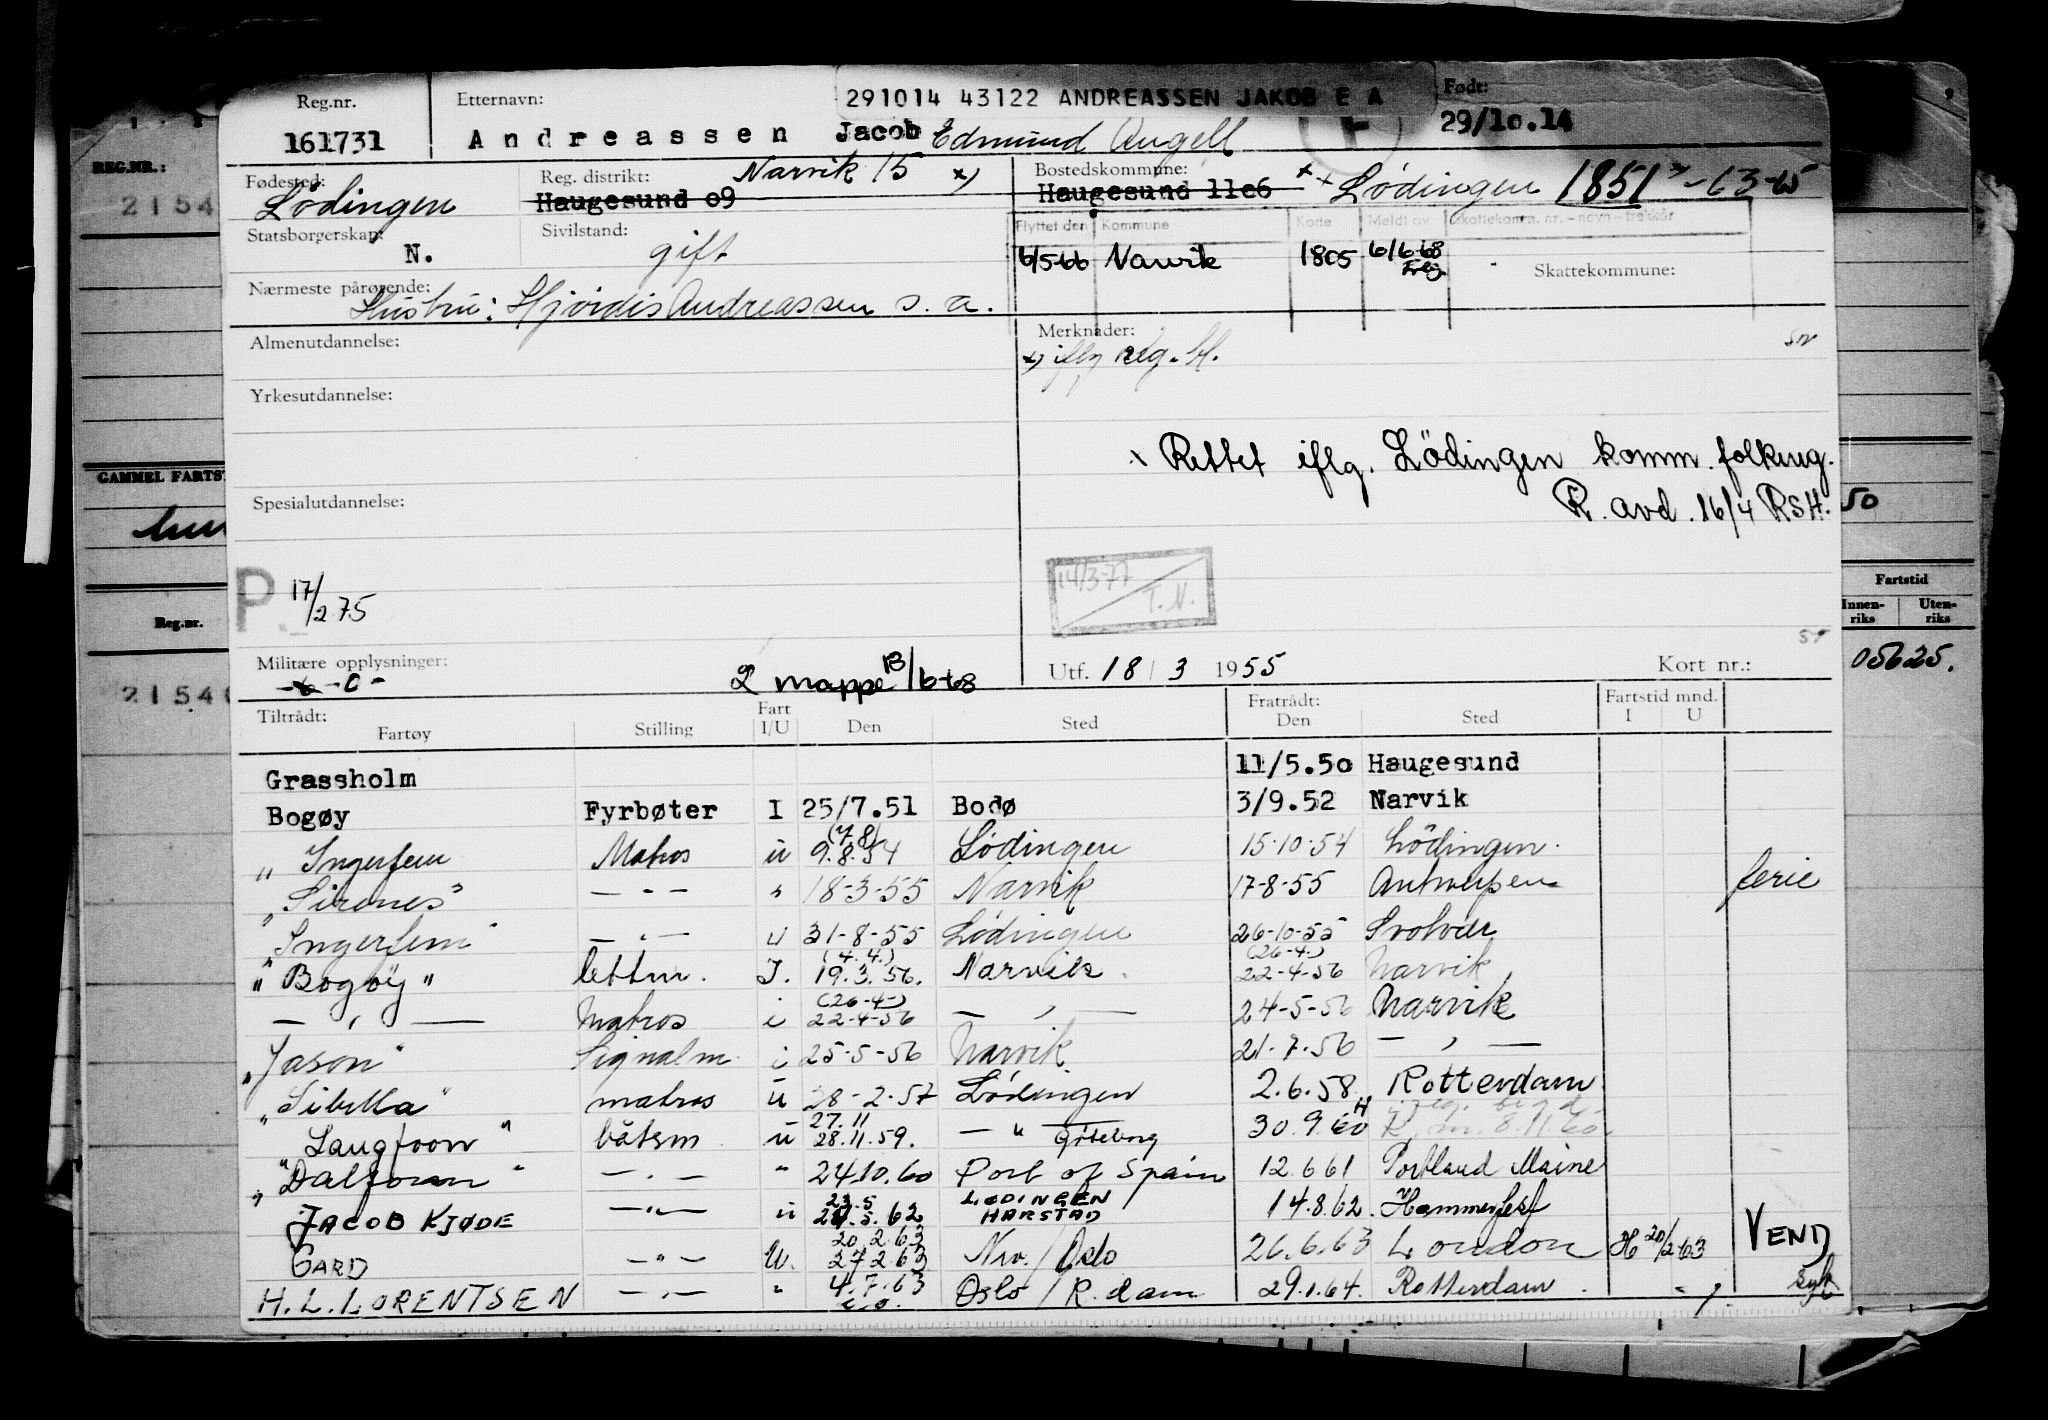 Reg.nr. Etternavn: 291014 43122 ANDREASSEN JAKOB E A Født:
161731 Andreassen Jacob Edmund Angell 29/10.14
REG.NR.:
Fødested: Reg. distrikt: Narvik 15 x) Bostedskommune: x Lödingen 1851
Lödingen Haugesund o9 Haugesund 11o6
2154
Statsborgerskap: Sivilstand: Flyttet den Kommune Kode Meldt av Skattekomm. nr. - navn - trekkår
N. gift 6/5-66 Narvik 1805 6/6-68
Skattekommune:
Nærmeste pårørende:
Hustru: Hjørdis Andreassen s. a.
Almenutdannelse: Merknader:
x) iflg reg. bl.
Yrkesutdannelse:
x Rettet iflg. Lödingen komm. folkereg.
R. avd. 16/4 RSH.
GAMMEL FARTST
50
Spesialutdannelse:
P 17/2 75
14/3-77
T.N.
Fartstid
Innen-riks Uten-riks
Reg.nr.
05625.
Militære opplysninger: - 0 - 2 mappe 13/6-68 Utf. 18/3 1955 Kort nr.:
2154
Tiltrådt: Fart Fratrådt: Fartstid mnd.
Fartøy Stilling I/U Den Sted Den Sted I U
Grassholm 11/5.50 Haugesund
Bogøy Fyrbøter I 25/7.51 Bodø 3/9.52 Narvik
" Ingerfem Matros u (7.8) 9.8.54 Lödingen 15-10-54 Lödingen.
"Sirenes" — " — " 18-3-55 Narvik 17-8-55 Antwerpen ferie
"Ingerfem" — " — u 31-8-55 Lödingen 26-10-55 Svolvær
"Bogöy" lettm. I. (4.4.) 19.3.56. Narvik. (26-4-) 22-4-56 Narvik
— " — Matros i (26-4-) 22-4-56 — " — 24-5-56 Narvik
"Jason" Signalm i 25-5-56 Narvik 21.7.56 — " —
"Sibella" matros u 28-2-57 Lödingen 2.6.58 Rotterdam
Langfoon" båtsm u 27.11 28.11.59. — " — Göteborg 30.9 60
"Dalfonn" — " — " 24.10.60 Port of Spain 12.6 61 Portland Maine
JACOB KJØDE — " — u 23.5 24.5.62 LØDINGEN HARSTAD 14.8.62. Hammerfest
GARD — " — U. 20.2.63 27.2.63 Nrv. / Oslo 26.6.63 London H 20/2-63 VEND
H. L. LORENTSEN — " — " 4.7.63 Oslo / R.dam 29.1.64. Rotterdam syk